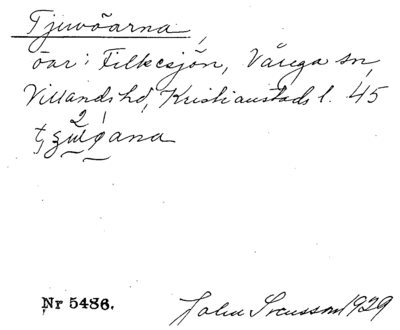 Tjuvöarna,
öar: Filkesjön, Vånga sn,
Villands hd, Kristianstads l. 45
2
Nr 5486. John Svensson 1929